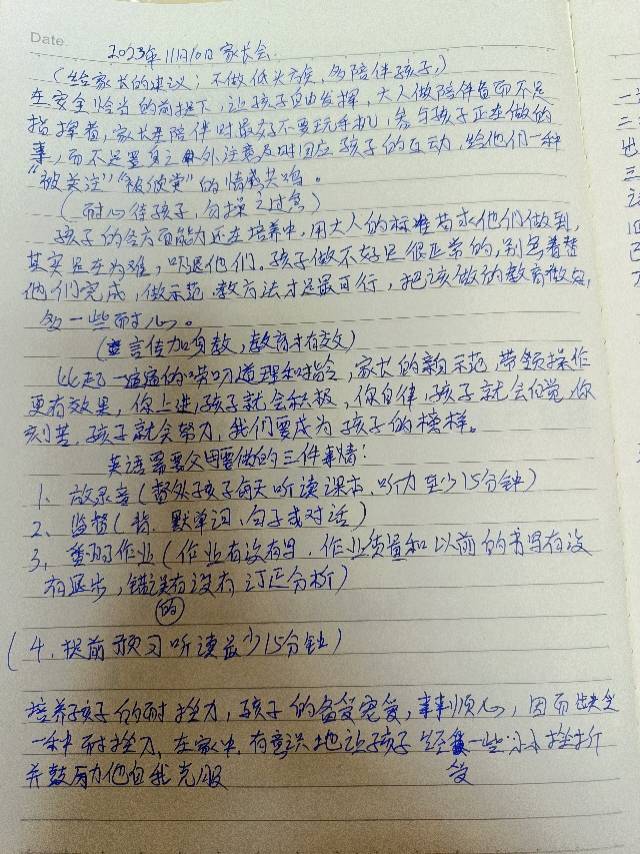 Date.
2023年11月10日家长会.
(给家长的建议；不做低头族，多陪伴孩子,)
在安全恰当的前提下，让孩子自由发挥，大人做陪伴者而不是
指挥者，家长在陪伴时最好不要玩手机，参与孩子正在做的
事，而不是置身之外注意及时回应孩子的互动，给他们一种
"被关注""被欣赏"的情感共鸣。
(耐心待孩子，勿操之过急)
孩子的各方面能力还在培养中，用大人的标准苛求他们做到，
其实是在为难，吓退他们。孩子做不好是很正常的，别急着替
他们完成，做示范、教方法才是最可行，把该做的教育做好，
多一些耐心。
(言传加身教，教育才有效)
比起一遍遍的唠叨道理和指令，家长的亲自示范，带领操作
更有效果，你上进，孩子就会积极，你自律，孩子就会自觉，你
刻苦，孩子就会努力，我们要成为孩子的榜样。
英语需要父母要做的三件事情：
1、放录音(督促孩子每天听读课本、听力至少15分钟)
2、监督(背、默单词、句子或对话)
3、作业(作业有没有写，作业质量和以前的书写有没
有进步，错误有没有订正分析)
的
(4、提前预习听读最少15分钟)
培养孩子的耐挫力，孩子的备受宠爱，事事顺心，因而缺乏
一种耐挫力，在家中，有意识地让孩子经一些小小挫折
受
并鼓励他自我克服
一
二
三